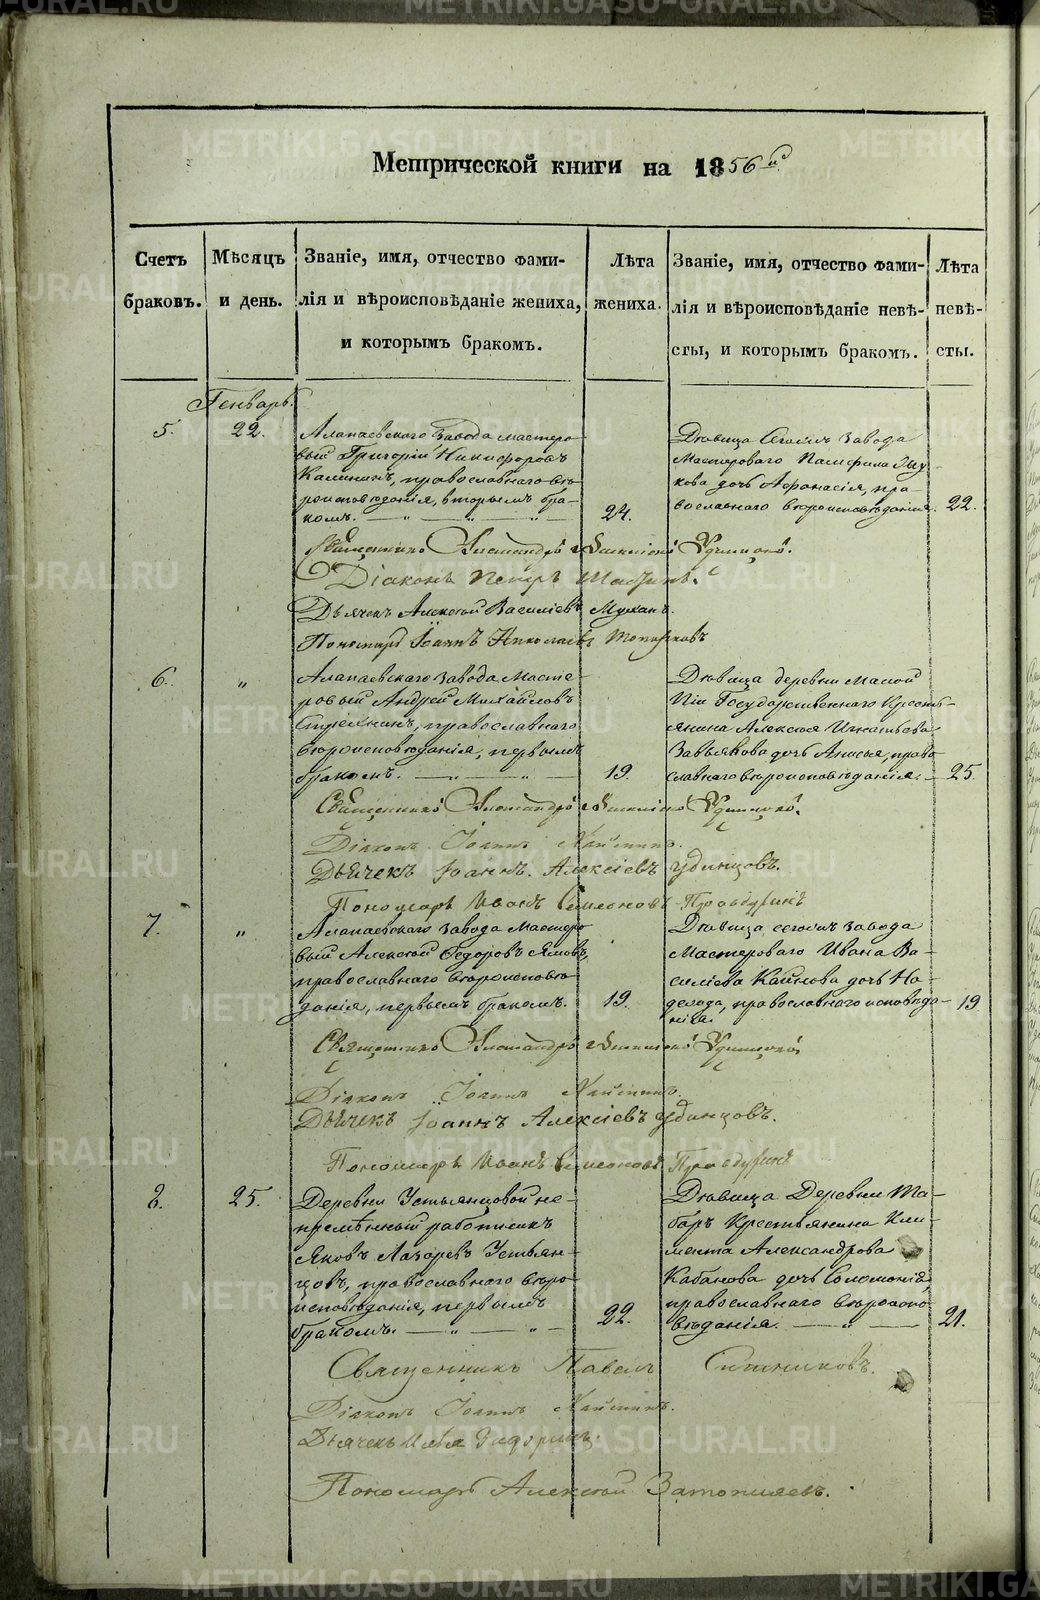 Метрической книги на 1856й годъ
Счетъ браковъ.
Мѣсяцъ и день.
Званіе, имя, отчество фами-
лія и вѣроисповѣданіе жениха,
и которымъ бракомъ.
Лѣта
жениха.
Званіе, имя, отчество фами-
лія и вѣроисповѣданіе невѣ-
сты, и которымъ бракомъ.
Лѣта
невѣ-
сты.
Генварь.
5.
22.
Алапаевскаго Завода мастеро-
вый Григорій Никифоровъ
Калининъ, православнаго вѣ-
роисповѣданія, вторымъ бра-
комъ.
24.
Дѣвица Сегожъ Завода
Мастероваго Памфила
кова дочь Афанасія, пра-
вославнаго вѣроисповѣданія.
22.
Священникъ Александръ Удинцовъ.
Діаконъ Петръ
Дьячекъ Алексѣй Василіевъ
Пономарь Іоаннъ Николаевъ Топорковъ
6.
"
Алапаевскаго Завода Масте-
ровый Андрей Михайловъ
Стрежнинъ, православнаго
вѣроисповѣданія, первымъ
бракомъ.
19.
Дѣвица деревни Малой
Государственнаго Кресть-
янина Алексѣя Игнатьева
Завьялова дочь Анисья, право-
славнаго вѣроисповѣданія.
25.
Священникъ Александръ Удинцовъ.
Діаконъ Іоаннъ
Дьячекъ Іоаннъ Алексіевъ Удинцовъ.
Пономарь Иванъ Симеоновъ
7.
"
Алапаевскаго Завода Мастеро-
вый Алексѣй Ѳедоровъ Ямовъ,
православнаго вѣроисповѣ-
данія, первымъ бракомъ.
19.
Дѣвица сегожъ завода
Мастероваго Ивана Ва-
силіева Кайнова дочь На-
дежда, православнаго исповѣда-
нія.
19
Священникъ Александръ Удинцовъ
Діаконъ Іоаннъ
Дьячекъ Іоаннъ Алексіевъ Удинцовъ.
Пономарь Иванъ Симеоновъ
8.
25.
Деревни Устьянцовой не-
премѣнный работникъ
Яковъ Лазаревъ Устьян-
цовъ, православнаго вѣро-
исповѣданія, первымъ
бракомъ.
22.
Дѣвица Деревни Та-
боръ Крестьянина Кли-
мента Александрова
Кабанова дочь Соломонія,
православнаго вѣроиспо-
вѣданія.
21.
Священникъ Павелъ Ситниковъ.
Діаконъ Іоаннъ
Дьячекъ Илья
Пономарь Алексѣй Затопляевъ.
METRIKI.GASO-URAL.RU